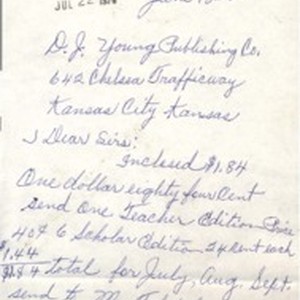 JUL 22
D. J. Young Publishing Co.
642 Chelsea Trafficway
Kansas City Kansas
Dear Sirs:
Inclosed $1.84
One dollar eighty four Cent
send One Teacher Edition Price
40¢ 6 Scholar Edition 24 Cent each
$1.44
$1.84 total for July, Aug. Sept.
send to